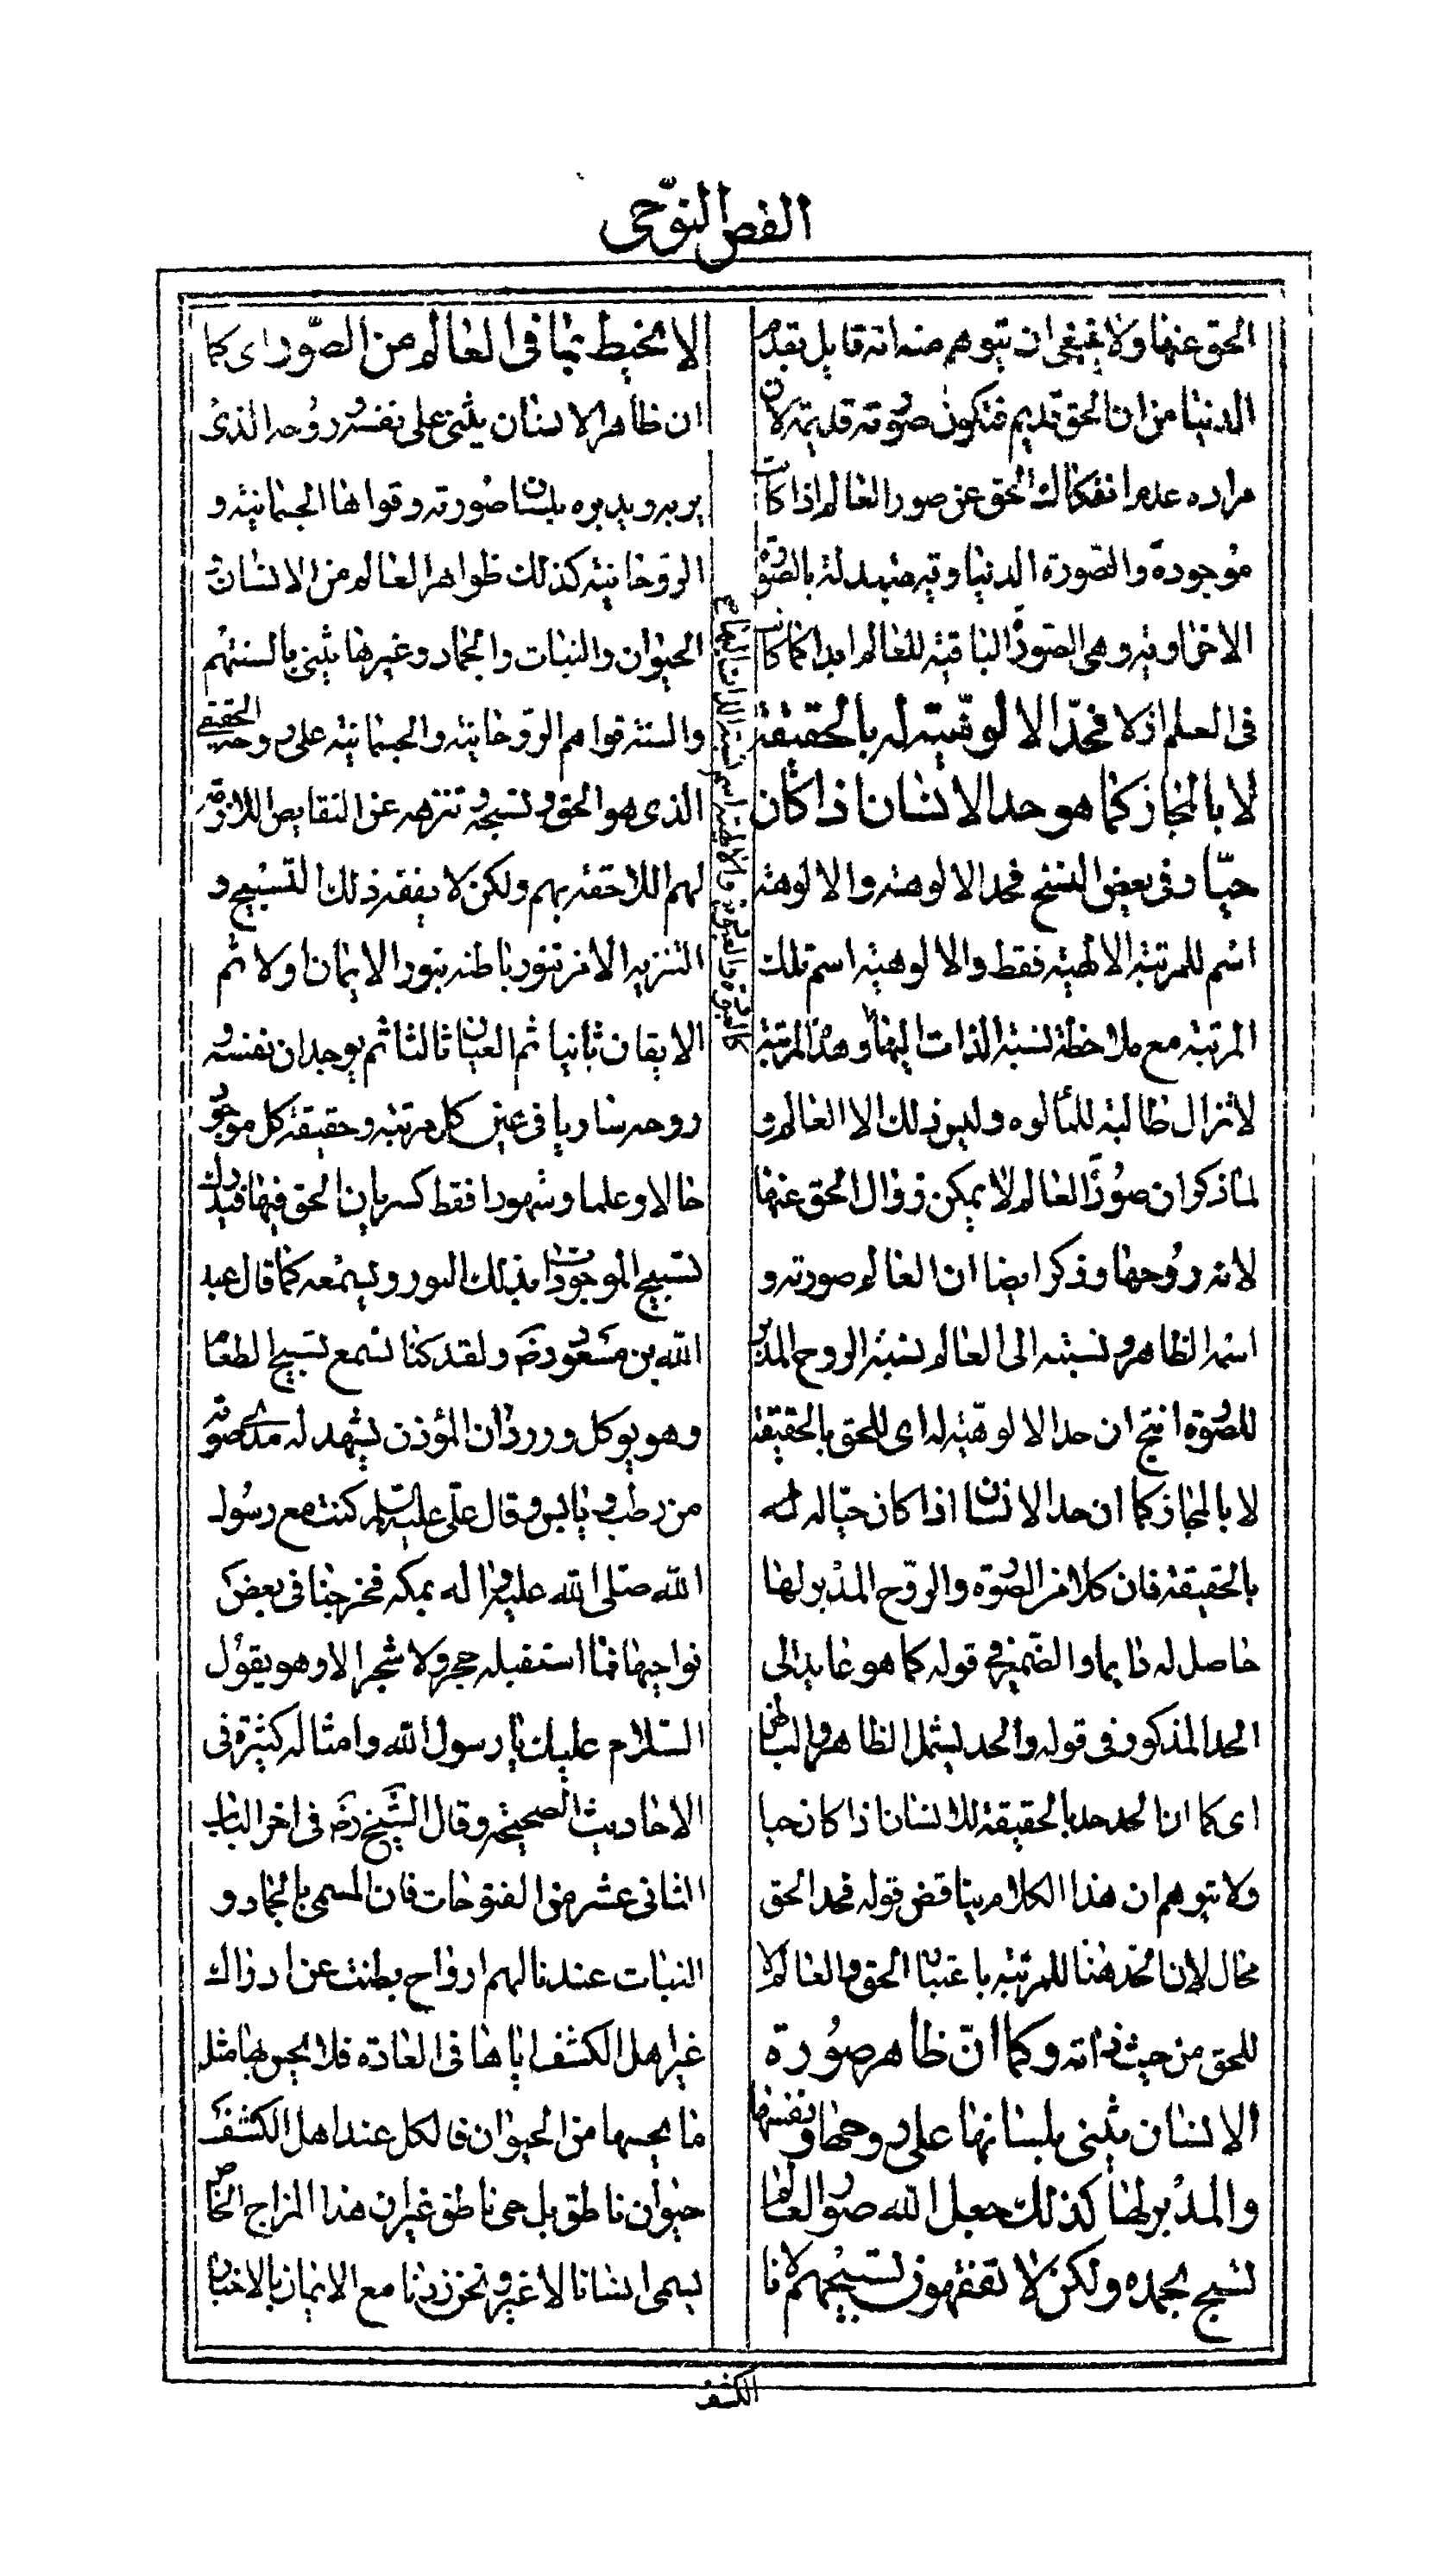 الفص النوحى
الحق عنها ولا ينبغى ان يتوهم منه انه قايل بقدم
الدنيا من ان الحق قديم فتكون صورته قديمة لان
مراده عدم انفكاك الحق عن صور العالم اذا كانت
موجودة والصورة الدنياوية متبدلة بالصورة
الاخراوية وهى الصورة الباقية للعالم ابدا كما كانت
فى العلم ازلا فحدّ الالوهيّة له بالحقيقة
لا بالمجاز كما هو حد الانسان اذا كان
حيّا وفى بعض النسخ فحد الالوهة والالوهة
اسم للمرتبة الالهية فقط والالوهية اسم تلك
المرتبة مع ملاحظة نسبة الذات اليها وهذه المرتبة
لا تزال طالبة للمألوه وليس ذلك الا العالم و
لما ذكر ان صورة العالم لا يمكن زوال الحق عنها
لانه روحها وذكر ايضا ان العالم صورته و
اسمه الظاهر ونسبته الى العالم نسبة الروح المدبر
للصورة انتج ان حد الالوهيّة له اى للحق بالحقيقة
لا بالمجاز كما ان حد الانسان اذا كان حيّا له
بالحقيقة فان كلا من الصورة والروّح المدبر لها
حاصل له دايما والضّمير فى قوله كما هو عايد الى
الحد المذكور فى قوله والحد يشمل الظاهر والباطن
اى كما ان الحد حد بالحقيقة للانسان اذا كان حيا
ولا يتوهم ان هذا الكلام يناقض قوله فحد الحق
محال لان الحد هنا للمرتبة باعتبار الحق والعالم لا
للحق من حيث ذاته وكما انّ ظاهر صورة
الانسان يثنى بلسانها على روحها ونفسها
والمدبر لها كذلك جعل الله صور العالم
تسبح بحمده ولكن لا تفقهون تسبيحهم لانا
لا نحيط بما فى العالم من الصّور اى كما
ان ظاهر الانسان يثنى على نفسه وروحه الذى
يربه ويدبره بلسان صورته وقواها الجسمانية و
الروحانية كذلك ظواهر العالم من الانسان و
الحيوان والنبات والجماد وغيرها يثنى بالسنتهم
والسنة قواهم الروّحانية والجسمانية على روحه الحقيقى
الذى هو الحق وتسبحه وتنزهه عن النقايص اللازمة
لهم اللاحقة بهم ولكن لا يفقه ذلك التسبيح و
التنزيه الا من تنور باطنه بنور الايمان اولا ثم
الايقان ثانيا ثم العيان ثالثا ثم بوجدان نفسه و
روحه ساريا فى عين كل مرتبة وحقيقة كل موجود
حالا وعلما وشهودا فقط كسريان الحق فيها فيدرك
تسبيح الموجودات بذلك النور ويسمعه كما قال عبد
الله بن مسعود رض ولقد كنا نسمع تسبيح الطعام
وهو يوكل وورد ان المؤذن يشهد له مدى صوته
من رطب ويابس وقال على عليه السلام كنت مع رسول
الله صلى الله عليه واله بمكه فخرجنا فى بعض
نواحيها فما استقبله حجر ولا شجر الا وهو يقول
السّلام عليك يا رسول الله وامثاله كثيرة فى
الاحاديث الصحيحة وقال الشيخ رض فى اخر الباب
الثانى عشر من الفتوحات فان المسمى بالجماد و
النبات عندنا لهم ارواح بطنت عن ادراك
غير اهل الكشف اياها فى العادة فلا يحس بها مثل
ما يحسها من الحيوان فالكل عند اهل الكشف
حيوان ناطق بل حى ناطق غير ان هذا المزاج الخاص
يسمى انسانا لا غير ونحن زدنا مع الايمان بالاخبار
الكشف